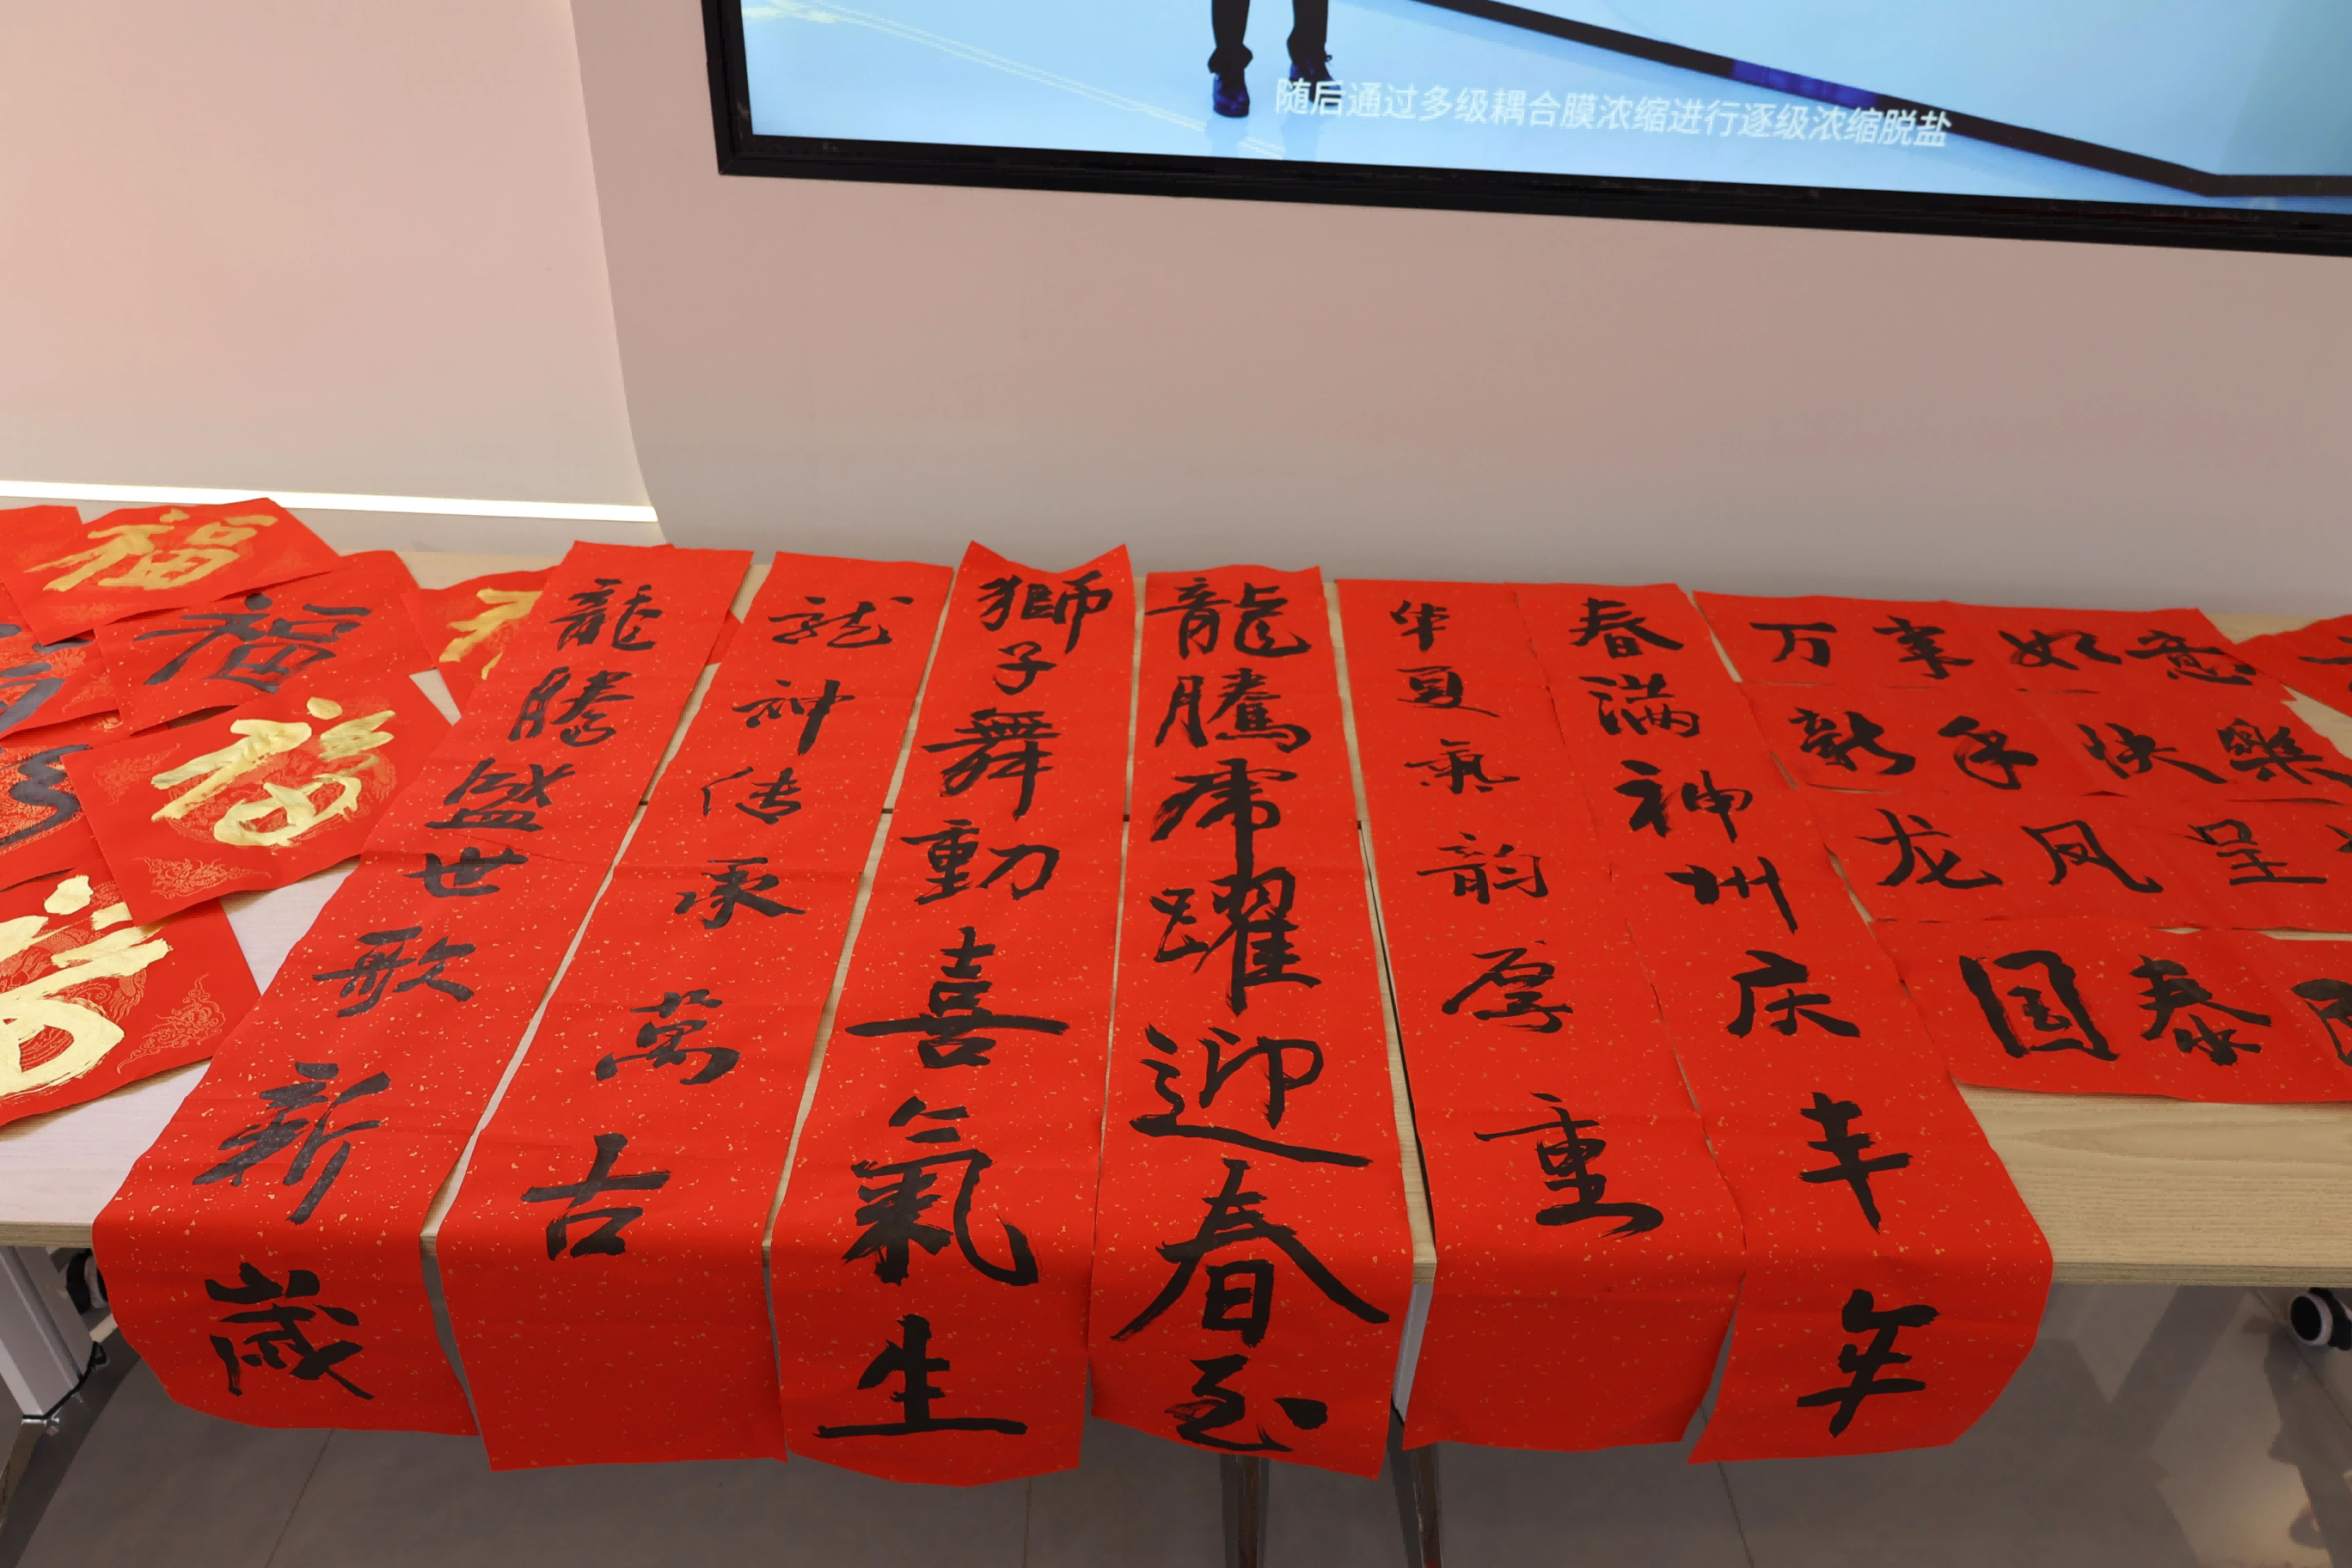 随后通过多级耦合膜浓缩进行逐级浓缩脱盐
福
福
福
龍騰盛世歌新歲
龙神传承萬古
獅子舞動喜氣生
龍騰虎躍迎春到
华夏氣韵厚重
春满神州庆丰年
万事如意
新年快樂
龙凤呈
国泰